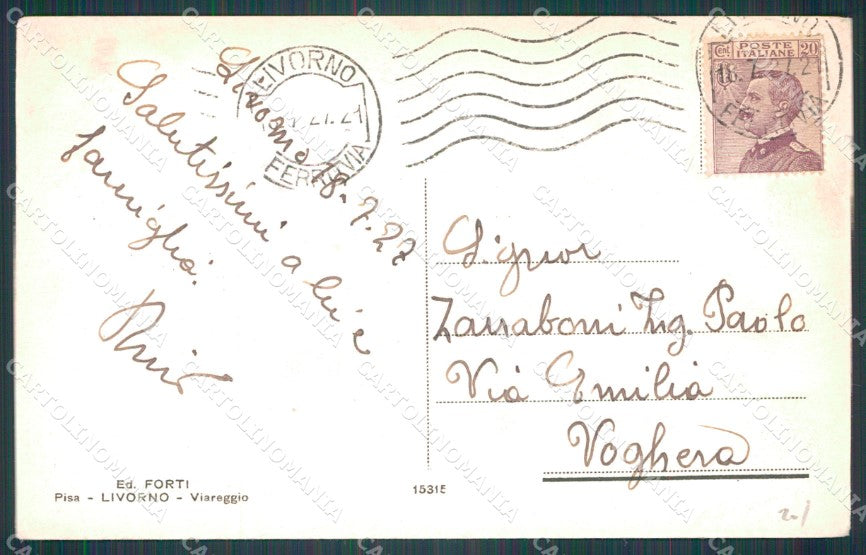 Livorno 18.7.27
Salutissimi a lei e
famiglia.
LIVORNO
FERROVIA
CENT. POSTE ITALIANE 20
Signor
Ing. Paolo
Via Emilia
Voghera
Ed. FORTI
Pisa - LIVORNO - Viareggio
15315
CARTOLINOMANIA